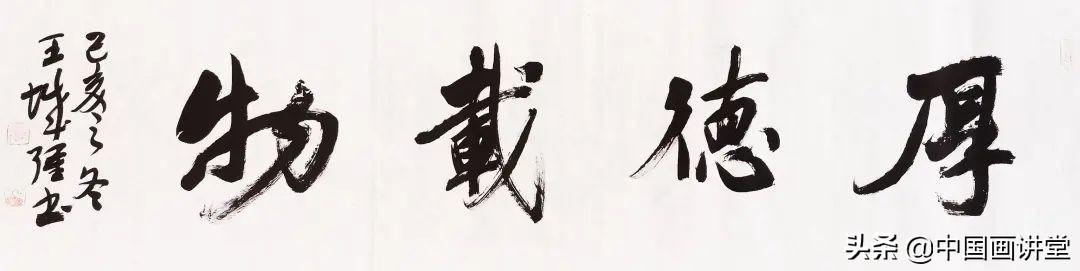 厚德載物
己亥之冬
王城书
头条 @中国画讲堂